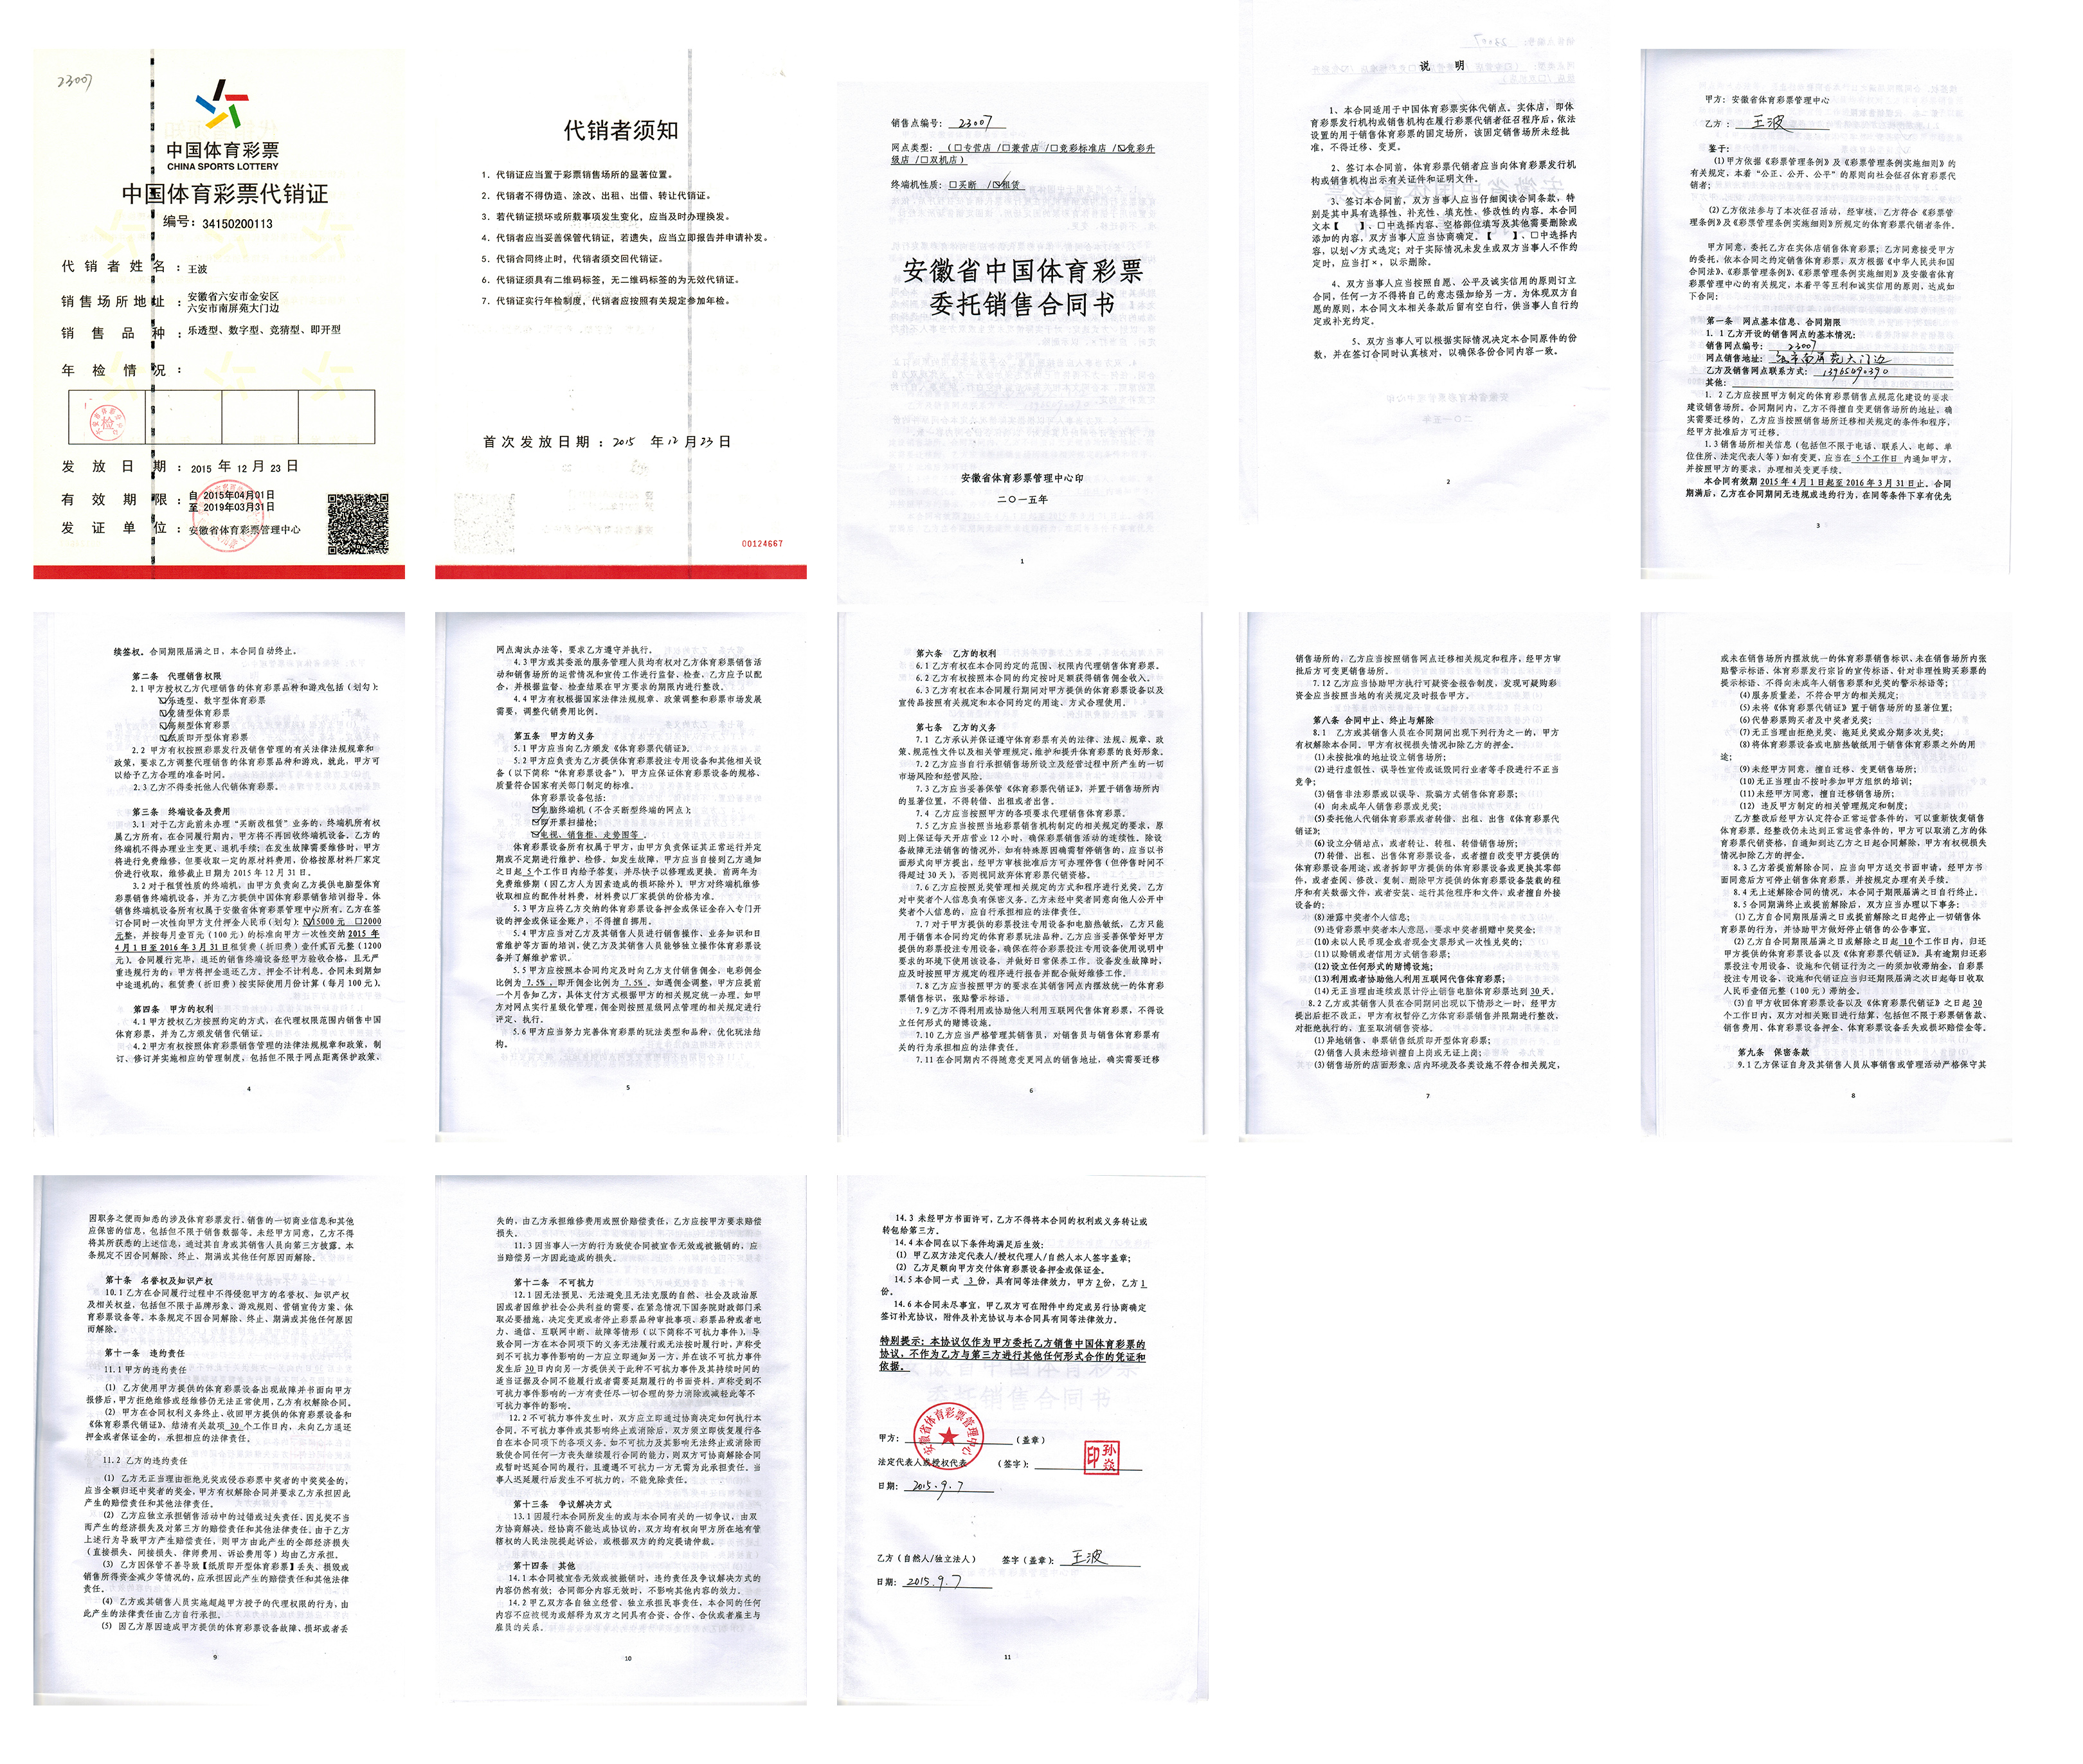 23007
中国体育彩票
CHINA SPORTS LOTTERY
中国体育彩票代销证
编号：34150200113
代销者姓名：王波
销售场所地址：安徽省六安市金安区
六安市南屏苑大门边
销售品种：乐透型、数字型、竞猜型、即开型
年检情况：
发放日期：2015 年 12 月 23 日
有效期限：自 2015年04月01日
至 2019年03月31日
发证单位：安徽省体育彩票管理中心
代销者须知
1. 代销证应当置于彩票销售场所的显著位置。
2. 代销者不得伪造、涂改、出租、出借、转让代销证。
3. 若代销证损坏或所载事项发生变化，应当及时办理换发。
4. 代销者应当妥善保管代销证，若遗失，应当立即报告并申请补发。
5. 代销合同终止时，代销者须交回代销证。
6. 代销证须具有二维码标签，无二维码标签的为无效代销证。
7. 代销证实行年检制度，代销者应按照有关规定参加年检。
首次发放日期：2015 年 12 月 23 日
00124667
销售点编号：23007
网点类型：（□专营店 /□兼营店 /□竞彩标准店 /☑竞彩升
级店 /□双机店）
终端机性质：□买断 /☑租赁
安徽省中国体育彩票
委托销售合同书
安徽省体育彩票管理中心印
二〇一五年
1
说 明
1、本合同适用于中国体育彩票实体代销点。实体店，即体
育彩票发行机构或销售机构在履行彩票代销者征召程序后，依法
设置的用于销售体育彩票的固定场所，该固定销售场所未经批
准，不得迁移、变更。
2、签订本合同前，体育彩票代销者应当向体育彩票发行机
构或销售机构出示有关证件和证明文件。
3、签订本合同前，双方当事人应当仔细阅读合同条款，特
别是其中具有选择性、补充性、填充性、修改性的内容。本合同
文本【 】、□中选择内容、空格部位填写及其他需要删除或
添加的内容，双方当事人应当协商确定。【 】、□中选择内
容，以划✓方式选定；对于实际情况未发生或双方当事人不作约
定时，应当打×，以示删除。
4、双方当事人应当按照自愿、公平及诚实信用的原则订立
合同，任何一方不得将自己的意志强加给另一方。为体现双方自
愿的原则，本合同文本相关条款后留有空白行，供当事人自行约
定或补充约定。
5、双方当事人可以根据实际情况决定本合同原件的份
数，并在签订合同时认真核对，以确保各份合同内容一致。
2
甲方：安徽省体育彩票管理中心
乙方：王波
鉴于：
(1)甲方依据《彩票管理条例》及《彩票管理条例实施细则》的
有关规定，本着“公正、公开、公平”的原则向社会征召体育彩票代
销者；
(2)乙方依法参与了本次征召活动，经审核，乙方符合《彩票管
理条例》及《彩票管理条例实施细则》所规定的体育彩票代销者条件。
甲方同意，委托乙方在实体店销售体育彩票；乙方同意接受甲方
的委托，依本合同之约定销售体育彩票，双方根据《中华人民共和国
合同法》、《彩票管理条例》、《彩票管理条例实施细则》及安徽省体育
彩票管理中心的有关规定，本着平等互利和诚实信用的原则，达成如
下合同：
第一条 网点基本信息、合同期限
1. 1 乙方开设的销售网点的基本情况：
销售网点编号：23007
网点销售地址：南屏苑大门边
乙方及销售网点联系方式：13965690390
其他：
1. 2 乙方应按照甲方制定的体育彩票销售点规范化建设的要求
建设销售场所。合同期间内，乙方不得擅自变更销售场所的地址，确
实需要迁移的，乙方应当按照销售场所迁移相关规定的条件和程序，
经甲方批准后方可迁移。
1.3 销售场所相关信息（包括但不限于电话、联系人、电邮、单
位住所、法定代表人等）如有变更，应当在 5 个工作日 内通知甲方，
并按照甲方的要求，办理相关变更手续。
本合同有效期 2015 年 4 月 1 日起至 2016 年 3 月 31 日止。合同
期满后，乙方在合同期间无违规或违约行为，在同等条件下享有优先
3
续签权。合同期限届满之日，本合同自动终止。
第二条 代理销售权限
2.1 甲方授权乙方代理销售的体育彩票品种和游戏包括（划勾）：
☑乐透型、数字型体育彩票
☑竞猜型体育彩票
☑高频型体育彩票
☑纸质即开型体育彩票
2.2 甲方有权按照彩票发行及销售管理的有关法律法规规章和
政策，要求乙方调整代理销售的体育彩票品种和游戏，就此，甲方可
以给予乙方合理的准备时间。
2.3 乙方不得委托他人代销体育彩票。
第三条 终端设备及费用
3.1 对于乙方此前未办理“买断改租赁”业务的，终端机所有权
属乙方所有，在合同履行期内，甲方将不再回收终端机设备。乙方的
终端机不得办理业主变更、退机手续；在发生故障需要维修时，甲方
将进行免费维修，但要收取一定的原材料费用，价格按原材料厂家定
价进行收取，维修截止日期为 2015 年 12 月 31 日。
3.2 对于租赁性质的终端机，由甲方负责向乙方提供电脑型体育
彩票销售终端机设备，并为乙方提供中国体育彩票销售培训指导。体
销售终端机设备所有权属于安徽省体育彩票管理中心所有。乙方在签
订合同时一次性向甲方支付押金人民币（划勾）：☑15000 元 □2000
元整，并按每月壹百元（100 元）的标准向甲方一次性交纳 2015 年
4 月 1 日至 2016 年 3 月 31 日租赁费（折旧费）壹仟贰百元整（1200
元）。合同履行完毕，退还的销售终端设备经甲方验收合格，且无严
重违规行为的，甲方将押金退还乙方。押金不计利息。合同未到期如
中途退机的，租赁费（折旧费）按实际使用月份计算（每月 100 元）。
第四条 甲方的权利
4.1 甲方授权乙方按照约定的方式，在代理权限范围内销售中国
体育彩票，并为乙方颁发代销证。
4.2 甲方有权按照体育彩票销售管理的法律法规规章和政策，制
订、修订并实施相应的管理制度，包括但不限于网点距离保护政策、
4
网点淘汰办法等，要求乙方遵守并执行。
4.3 甲方或其委派的服务管理人员均有权对乙方体育彩票销售活
动和销售场所的运营情况和宣传工作进行监督、检查。乙方应予以配
合，并根据监督、检查结果在甲方要求的期限内进行整改。
4.4 甲方有权根据国家法律法规规章、政策调整和彩票市场发展
需要，调整代销费用比例。
第五条 甲方的义务
5.1 甲方应当向乙方颁发《体育彩票代销证》。
5.2 甲方应负责为乙方提供体育彩票投注专用设备和其他相关设
备（以下简称“体育彩票设备”）。甲方应保证体育彩票设备的规格、
质量符合国家有关部门制定的标准。
体育彩票设备包括：
☑电脑终端机（不含买断型终端的网点）；
☑即开票扫描枪；
☑电视、销售柜、走势图等 。
体育彩票设备所有权属于甲方，由甲方负责保证其正常运行并定
期或不定期进行维护、检修。如发生故障，甲方应当自接到乙方通知
之日起 5 个工作日内给予答复，并尽快予以修理或更换。前两年为
免费维修期（因乙方人为因素造成的损坏除外）。甲方对终端机维修
收取相应的配件材料费，材料费以厂家提供的价格为准。
5.3 甲方应将乙方交纳的体育彩票设备押金或保证金存入专门开
设的押金或保证金账户，不得擅自挪用。
5.4 甲方应当对乙方及其销售人员进行销售操作、业务知识和日
常维护等方面的培训，使乙方及其销售人员能够独立操作体育彩票设
备并了解维护常识。
5.5 甲方应按照本合同约定及时向乙方支付销售佣金，电彩佣金
比例为 7.5% ，即开佣金比例为 7.5% 。如遇佣金调整，甲方应提前
一个月告知乙方，具体支付方式根据甲方的相关规定统一办理。如甲
方对网点实行星级化管理，佣金则按照星级网点管理的相关规定进行
评定、执行。
5.6 甲方应当努力完善体育彩票的玩法类型和品种，优化玩法结
构。
5
第六条 乙方的权利
6.1 乙方有权在本合同约定的范围、权限内代理销售体育彩票。
6.2 乙方有权按照本合同的约定按时足额获得销售佣金收入。
6.3 乙方有权在本合同履行期间对甲方提供的体育彩票设备以及
宣传品按照有关规定和本合同约定的用途、方式合理使用。
第七条 乙方的义务
7.1 乙方承认并保证遵守体育彩票有关的法律、法规、规章、政
策、规范性文件以及相关管理规定，维护和提升体育彩票的良好形象。
7.2 乙方应当自行承担销售场所设立及经营过程中所产生的一切
市场风险和经营风险。
7.3 乙方应当妥善保管《体育彩票代销证》，并置于销售场所内
的显著位置，不得转借、出租或者出售。
7.4 乙方应当按照甲方的各项要求代销体育彩票。
7.5 乙方应当按照当地彩票销售机构制定的相关规定的要求，原
则上保证每天开店营业 12 小时，确保彩票销售活动的连续性。除设
备故障无法销售的情况外，如有特殊原因确需暂停销售的，应当以书
面形式向甲方提出，经甲方审核批准后方可办理停售（但停售时间不
得超过 30 天），否则视同放弃体育彩票代销资格。
7.6 乙方应按照兑奖管理相关规定的方式和程序进行兑奖。乙方
对中奖者个人信息负有保密义务。乙方未经中奖者同意向他人公开中
奖者个人信息的，应自行承担相应的法律责任。
7.7 对于甲方提供的彩票投注专用设备和电脑热敏纸，乙方只能
用于销售本合同约定的体育彩票玩法品种。乙方应当妥善保管好甲方
提供的彩票投注专用设备，确保在符合彩票投注专用设备使用说明中
要求的环境下使用该设备，并做好日常保养工作。设备发生故障时，
应及时按照甲方规定的程序进行报告并配合做好维修工作。
7.8 乙方应当按照甲方的要求在其销售网点内摆放统一的体育彩
票销售标识，张贴警示标语。
7.9 乙方不得利用或协助他人利用互联网代售体育彩票，不得设
立任何形式的赌博设施。
7.10 乙方应当严格管理其销售员，对销售员与销售体育彩票有
关的行为承担相应的法律责任。
7.11 在合同期内不得随意变更网点的销售地址，确实需要迁移
6
销售场所的，乙方应当按照销售网点迁移相关规定和程序，经甲方审
批后方可变更销售场所。
7.12 乙方应当协助甲方执行可疑资金报告制度，发现可疑购彩
资金应当按照当地的有关规定及时报告甲方。
第八条 合同中止、终止与解除
8.1 乙方或其销售人员在合同期间出现下列行为之一的，甲方
有权解除本合同。甲方有权视损失情况扣除乙方的押金。
(1)未按批准的地址设立销售场所；
(2)进行虚假性、误导性宣传或诋毁同行业者等手段进行不正当
竞争；
(3)销售非法彩票或以误导、欺骗方式销售体育彩票；
(4) 向未成年人销售彩票或兑奖；
(5)委托他人代销体育彩票或者转借、出租、出售《体育彩票代
销证》；
(6)设立分销站点，或者转让、转租、转借销售场所；
(7)转借、出租、出售体育彩票设备，或者擅自改变甲方提供的
体育彩票设备用途，或者拆卸甲方提供的体育彩票设备或更换其零部
件，或者查阅、修改、复制、删除甲方提供的体育彩票设备装载的程
序和有关数据文件，或者安装、运行其他程序和文件，或者擅自外接
设备的；
(8)泄露中奖者个人信息；
(9)违背中奖者本人意愿，要求中奖者捐赠中奖奖金；
(10)未以人民币现金或者现金支票形式一次性兑奖的；
(11)以赊销或者信用方式销售体彩；
(12)设立任何形式的赌博设施；
(13)利用或者协助他人利用互联网代售体育彩票；
(14)无正当理由连续或累计停止销售电脑体育彩票达到 30 天。
8.2 乙方或其销售人员在合同期间出现以下情形之一时，经甲方
提出后拒不改正，甲方有权暂停乙方体育彩票销售并限期进行整改，
对拒绝执行的，直至取消销售资格。
(1)异地销售、非票销售纸质即开型体育彩票；
(2)销售人员未经培训擅自上岗或无证上岗；
(3)销售场所的店面形象、店内环境及各类设施不符合相关规定，
7
或未在销售场所内摆放统一的体育彩票销售标识、未在销售场所内张
贴警示标语、体育彩票发行宗旨的宣传标语、针对非理性购买彩票的
提示标语、不得向未成年人销售彩票和兑奖的警示标语等；
(4)服务质量差，不符合甲方的相关规定；
(5)未将《体育彩票代销证》置于销售场所的显著位置；
(6)代替彩票购买者及中奖者兑奖；
(7)无正当理由拒绝兑奖、拖延兑奖或分期多次兑奖；
(8)将体育彩票设备或电脑热敏纸用于销售体育彩票之外的用
途；
(9)未经甲方同意，擅自迁移、变更销售场所；
(10)无正当理由不按时参加甲方组织的培训；
(11)未经甲方同意，擅自迁移销售场所；
(12) 违反甲方制定的相关管理规定和制度；
乙方整改后经甲方认定符合正常运营条件的，可以重新恢复销售
体育彩票。经整改仍未达到正常运营条件的，甲方可以取消乙方的体
育彩票代销资格，自通知到达乙方之日起合同解除，甲方有权视损失
情况扣除乙方的押金。
8.3 乙方若提前解除合同，应当向甲方送交书面申请，经甲方书
面同意后方可停止销售体育彩票，并按规定办理有关手续。
8.4 无上述解除合同的情况，本合同于期限届满之日自行终止。
8.5 合同期满终止或提前解除后，双方应当办理以下事务：
(1)乙方自合同期限届满之日或提前解除之日起停止一切销售体
育彩票的行为，并协助甲方做好停止销售的公告事宜。
(2)乙方自合同期限届满之日或解除之日起 10 个工作日内，归还
甲方提供的体育彩票设备以及《体育彩票代销证》。具有逾期归还彩
票投注专用设备、设施和代销证行为之一的须加收滞纳金，自彩票
投注专用设备、设施和代销证应当归还期限届满之次日起每日收取
人民币壹佰元整（100 元）滞纳金。
(3)自甲方收回体育彩票设备以及《体育彩票代销证》之日起 30
个工作日内，双方对相关账目进行结算，包括但不限于彩票销售款、
销售费用、体育彩票设备押金、体育彩票设备丢失或损坏赔偿金等。
第九条 保密条款
9.1 乙方保证自身及其销售人员从事销售或管理活动严格保守其
8
因职务之便而知悉的涉及体育彩票发行、销售的一切商业信息和其他
应保密的信息，包括但不限于销售数据等。未经甲方同意，乙方不得
将其所获悉的上述信息，通过其自身或其销售人员向第三方披露。本
条规定不因合同解除、终止、期满或其他任何原因而解除。
第十条 名誉权及知识产权
10.1 乙方在合同履行过程中不得侵犯甲方的名誉权、知识产权
及相关权益，包括但不限于品牌形象、游戏规则、营销宣传方案、体
育彩票设备等。本条规定不因合同解除、终止、期满或其他任何原因
而解除。
第十一条 违约责任
11.1 甲方的违约责任
(1) 乙方使用甲方提供的体育彩票设备出现故障并书面向甲方
报修后，甲方拒绝维修或经维修仍无法正常使用，乙方有权解除合同。
(2) 甲方在合同权利义务终止、收回甲方提供的体育彩票设备和
《体育彩票代销证》、结清有关款项 30 个工作日内，未向乙方退还
押金或者保证金的，承担相应的法律责任。
11.2 乙方的违约责任
(1) 乙方无正当理由拒绝兑奖或侵吞彩票中奖者的中奖奖金的，
应当全额归还中奖者的奖金，甲方有权解除合同并要求乙方承担因此
产生的赔偿责任和其他法律责任。
(2) 乙方应独立承担销售活动中的过错或过失责任，因兑奖不当
而产生的经济损失及对第三方的赔偿责任和其他法律责任。由于乙方
上述行为导致甲方产生赔偿责任，则甲方由此产生的全部经济损失
（直接损失、间接损失、律师费用、诉讼费用等）均由乙方承担。
(3) 乙方因保管不善导致【纸质即开型体育彩票】丢失、损毁或
销售所得资金减少等情况的，应承担因此产生的赔偿责任和其他法律
责任。
(4) 乙方或其销售人员实施超越甲方授予的代理权限的行为，由
此产生的法律责任由乙方自行承担。
(5) 因乙方原因造成甲方提供的体育彩票设备故障、损坏或者丢
9
失的，由乙方承担维修费用或照价赔偿责任，乙方应按甲方要求赔偿
损失。
11.3 因当事人一方的行为致使合同被宣告无效或被撤销的，应
当赔偿另一方因此造成的损失。
第十二条 不可抗力
12.1 因无法预见、无法避免且无法克服的自然、社会及政治原
因或者因维护社会公共利益的需要，在紧急情况下国务院财政部门采
取必要措施，决定变更或者停止彩票品种审批事项、彩票品种或者电
力、通信、互联网中断、故障等情形（以下简称不可抗力事件），导
致合同一方在本合同项下的义务无法履行或无法按时履行时，声称受
到不可抗力事件影响的一方应立即通知另一方，并在该不可抗力事件
发生后 30 日内向另一方提供关于此种不可抗力事件及其持续时间的
适当证据及合同不能履行或者需要延期履行的书面资料。声称受到不
可抗力事件影响的一方有责任尽一切合理的努力消除或减轻此等不
可抗力事件的影响。
12.2 不可抗力事件发生时，双方应立即通过协商决定如何执行本
合同。不可抗力事件或其影响终止或消除后，双方须立即恢复履行各
自在本合同项下的各项义务。如不可抗力及其影响无法终止或消除而
致使合同任何一方丧失继续履行合同的能力，则双方可协商解除合同
或暂时迟延合同的履行，且遭遇不可抗力一方无需为此承担责任。当
事人迟延履行后发生不可抗力的，不能免除责任。
第十三条 争议解决方式
13.1 因履行本合同所发生的或与本合同有关的一切争议，由双
方协商解决。经协商不能达成协议的，双方均有权向甲方所在地有管
辖权的人民法院提起诉讼，或根据双方的约定提请仲裁。
第十四条 其他
14.1 本合同被宣告无效或被撤销时，违约责任及争议解决方式的
内容仍然有效；合同部分内容无效时，不影响其他内容的效力。
14.2 甲乙双方各自独立经营、独立承担民事责任，本合同的任何
内容不应被视为或解释为双方之间具有合资、合作、合伙或者雇主与
雇员的关系。
10
14.3 未经甲方书面许可，乙方不得将本合同的权利或义务转让或
转包给第三方。
14.4 本合同在以下条件均满足后生效：
(1) 甲乙双方法定代表人/授权代理人/自然人本人签字盖章；
(2) 乙方足额向甲方交付体育彩票设备押金或保证金。
14.5 本合同一式 3 份，具有同等法律效力，甲方 2 份，乙方 1
份。
14.6 本合同未尽事宜，甲乙双方可在附件中约定或另行协商确定
签订补充协议，附件及补充协议与本合同具有同等法律效力。
特别提示：本协议仅作为甲方委托乙方销售中国体育彩票的
协议，不作为乙方与第三方进行其他任何形式合作的凭证和
依据。
甲方：（盖章）
安徽省体育彩票管理中心
法定代表人或授权代表 （签字）：
孙焱印
日期：2015.9.7
乙方（自然人/独立法人） 签字（盖章）：王波
日期：2015.9.7
11